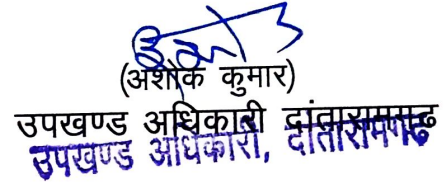 (अशोक कुमार)
उपखण्ड अधिकारी दांतारामगढ़
उपखण्ड अधिकारी, दांतारामगढ